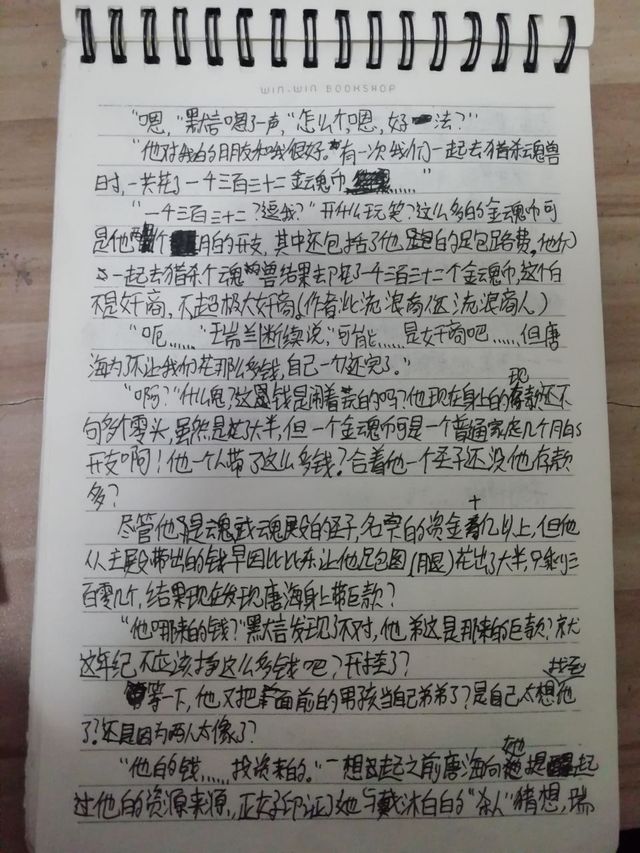 WIN-WIN BOOKSHOP
"嗯,"黑言嗯了一声,"怎么个嗯,好法?"
"他对我的朋友和我很好。有一次我们一起去猎杀魂兽
时,一共花了一千三百三十二金魂币......"
"一千三百三十二?逗我?"开什么玩笑?这么多的金魂币可
是他两个月的开支,其中还包括了他跑的路费。他们
一起去猎杀个魂兽结果去花了一千三百三十二个金魂币,这怕
不是奸商,不超极大奸商(作者:此流浪商仅流浪商人)
"呃......"王瑞兰断续说,"可能......是奸商吧......但唐
海为了不让我们花那么多钱,自己一个还完了。"
"啊?"什么鬼?这钱是闹着芸的吗?他现在身上的现款还不
句多个零头,虽然是花了大半,但一个金魂币可是一个普通家庭几个月的
开支啊!他一个人带了这么多钱?合着他一个圣子还没他存款
多?
尽管他是魂武魂殿的圣子,名字的资金十几亿以上,但他
从主殿带出的钱早因比比东让他包圆(月艮)花出了大半,只剩三
百零几个,结果现在发现唐海身上带巨款?
"他哪来的钱?"黑言发现了不对,他弟这是那来的巨款?就
这年纪不应该挣这么多钱吧?开挂了?
等一下,他又把面前的男孩当自己弟弟了?是自己太想找到他
了?还是因为两人太像了?
"他的钱......投资来的。"一想起之前唐海向她提起
过他的资源来源,正好印证了她与戴沐白的"杀人"猜想,瑞